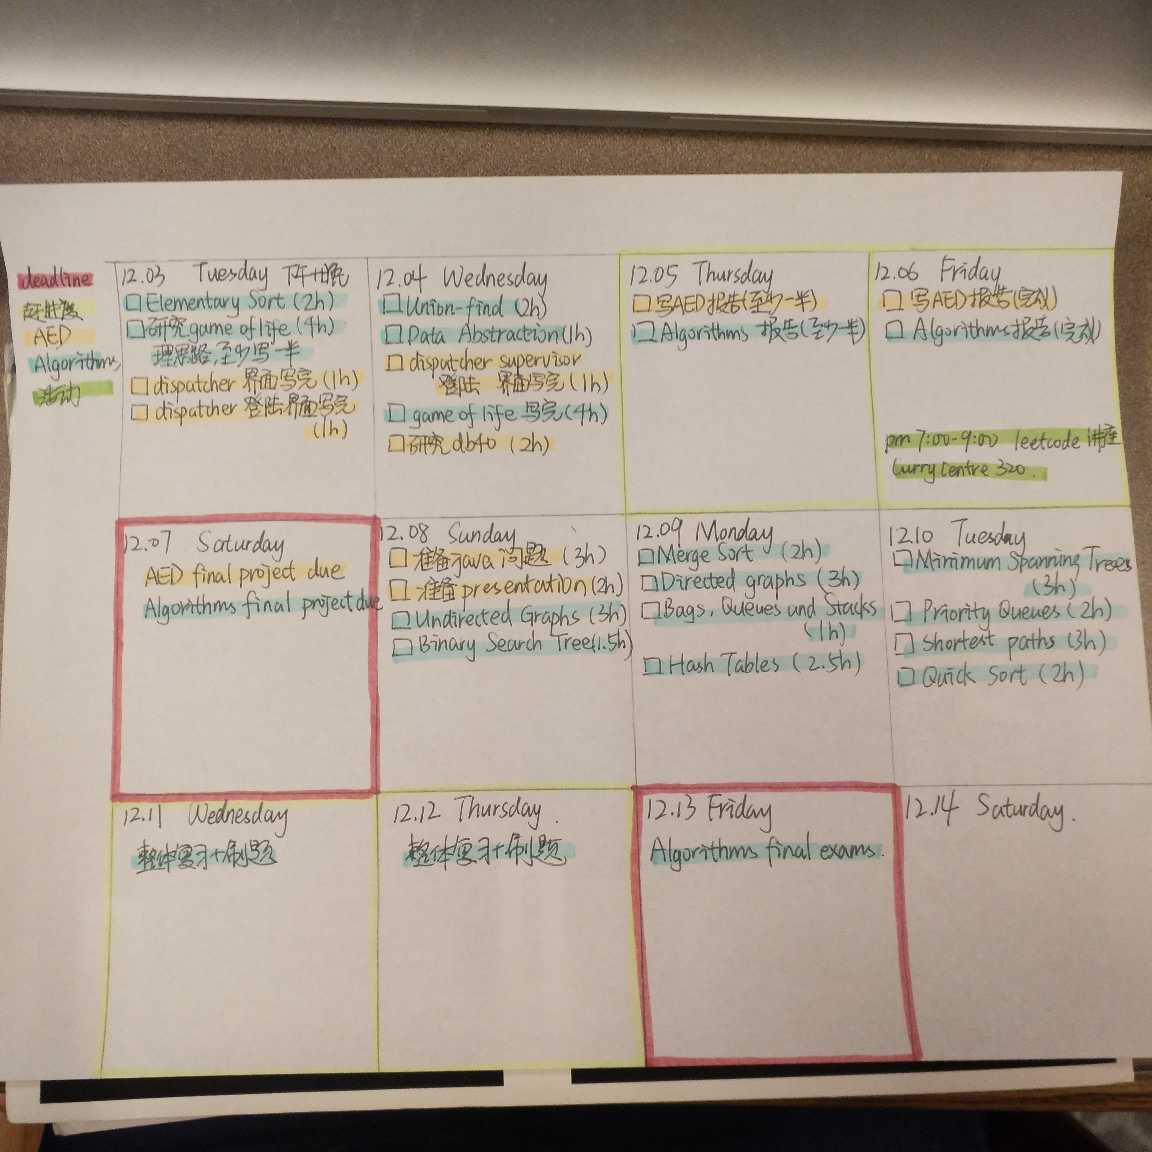 deadline
AED
Algorithms
活动
12.03 Tuesday 下午
Elementary Sort (2h)
研究game of life (4h)
理思路,至少写一半
dispatcher 界面写完(1h)
dispatcher 登陆界面写完
(1h)
12.04 Wednesday
Union-find (2h)
Data Abstraction(1h)
dispatcher supervisor
登陆 界面写完(1h)
game of life 写完(4h)
研究db4o (2h)
12.05 Thursday
写AED报告(至少一半)
Algorithms 报告(至少一半)
12.06 Friday
写AED报告(完成)
Algorithms报告(完成)
pm 7:00-9:00 leetcode 讲座
Curry Centre 320.
12.07 Saturday
AED final project due
Algorithms final project due
12.08 Sunday
准备java问题 (3h)
准备presentation(2h)
Undirected Graphs (3h)
Binary Search Tree(1.5h)
12.09 Monday
Merge Sort (2h)
Directed graphs (3h)
Bags, Queues and Stacks
(1h)
Hash Tables (2.5h)
12.10 Tuesday
Minimum Spanning Trees
(3h)
Priority Queues (2h)
Shortest paths (3h)
Quick Sort (2h)
12.11 Wednesday
整体复习+刷题
12.12 Thursday.
整体复习+刷题
12.13 Friday
Algorithms final exams.
12.14 Saturday.